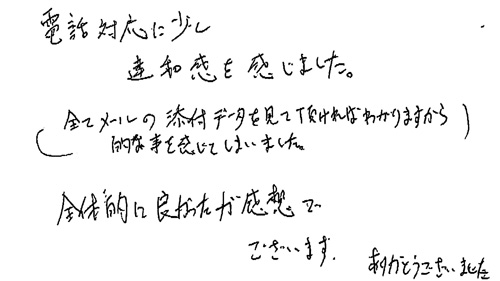 電話対応に少し
違和感を感じました。
(全てメールの添付データを見て頂ければわかりますから
的な事を感じてしまいました。)
全体的に良かったが感想で
ございます.
ありがとうございました